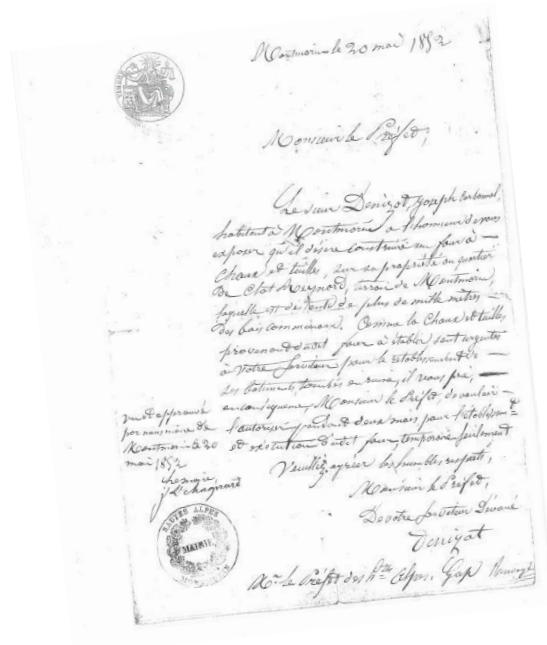 Montmorin le 20 mai 1852
TIMBRE
Monsieur le Préfet,
Le sieur Denizot, Joseph
habitant à Montmorin a l'honneur de vous
exposer qu'il désire construire un four à
chaux et tuiles, sur sa propriété au quartier
de Clot Meynord, terroir de Montmorin,
laquelle est de de plus de mille mètres
des bois communaux. Comme la Chaux et tuiles
provenant dudit four à établir sont urgentes
à Votre Serviteur pour le rétablissement de
ses bâtiments tombés en ruine, il vous prie,
en conséquence, Monsieur le Préfet, de vouloir
l'autoriser pendant deux mois pour l'établissemt
et exécution dudit four, temporaire seulement
Veuillez agréer les humbles respects,
Monsieur le Préfet,
De votre Serviteur Dévoué
Denizot
Mr. le Préfet des Htes Alpes. Gap
vu et approuvé
par nous maire de
Montmorin le 20
mai 1852
HAUTES ALPES
MAIRIE